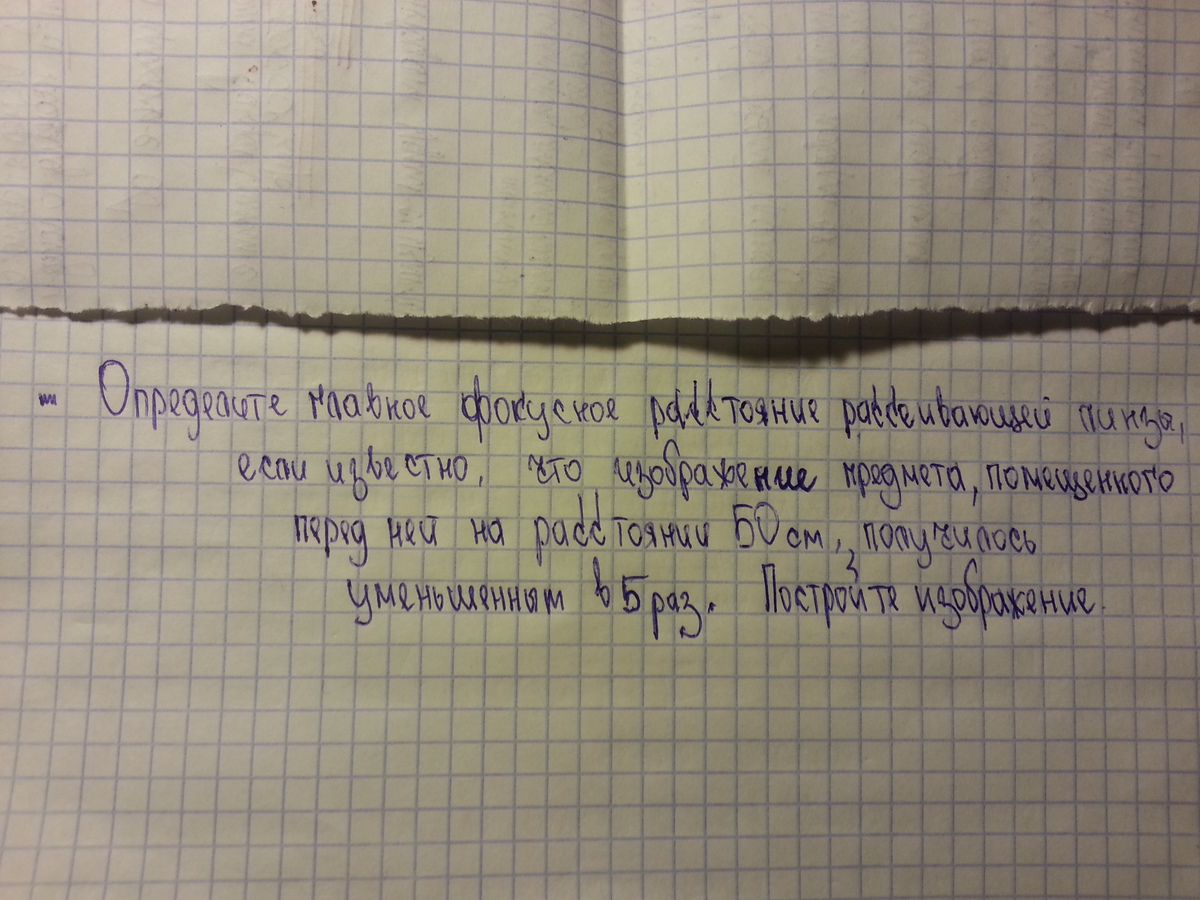 Определите главное фокусное расстояние рассеивающей линзы,
если известно, что изображение предмета, помещенного
перед ней на расстоянии 50 см, получилось
уменьшенным в 5 раз. Постройте изображение.